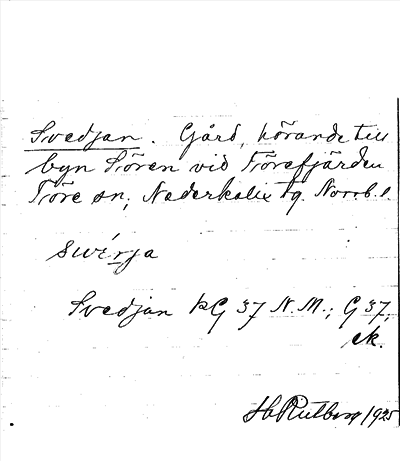 Svedjan. Gård, hörande till
byn Sören vid Törefjärden
Töre sn, Nederkalix tg. Norrb. l.
swérja
Svedjan KG 37 N.M.; G 37,
ek.
H Rutberg 1925